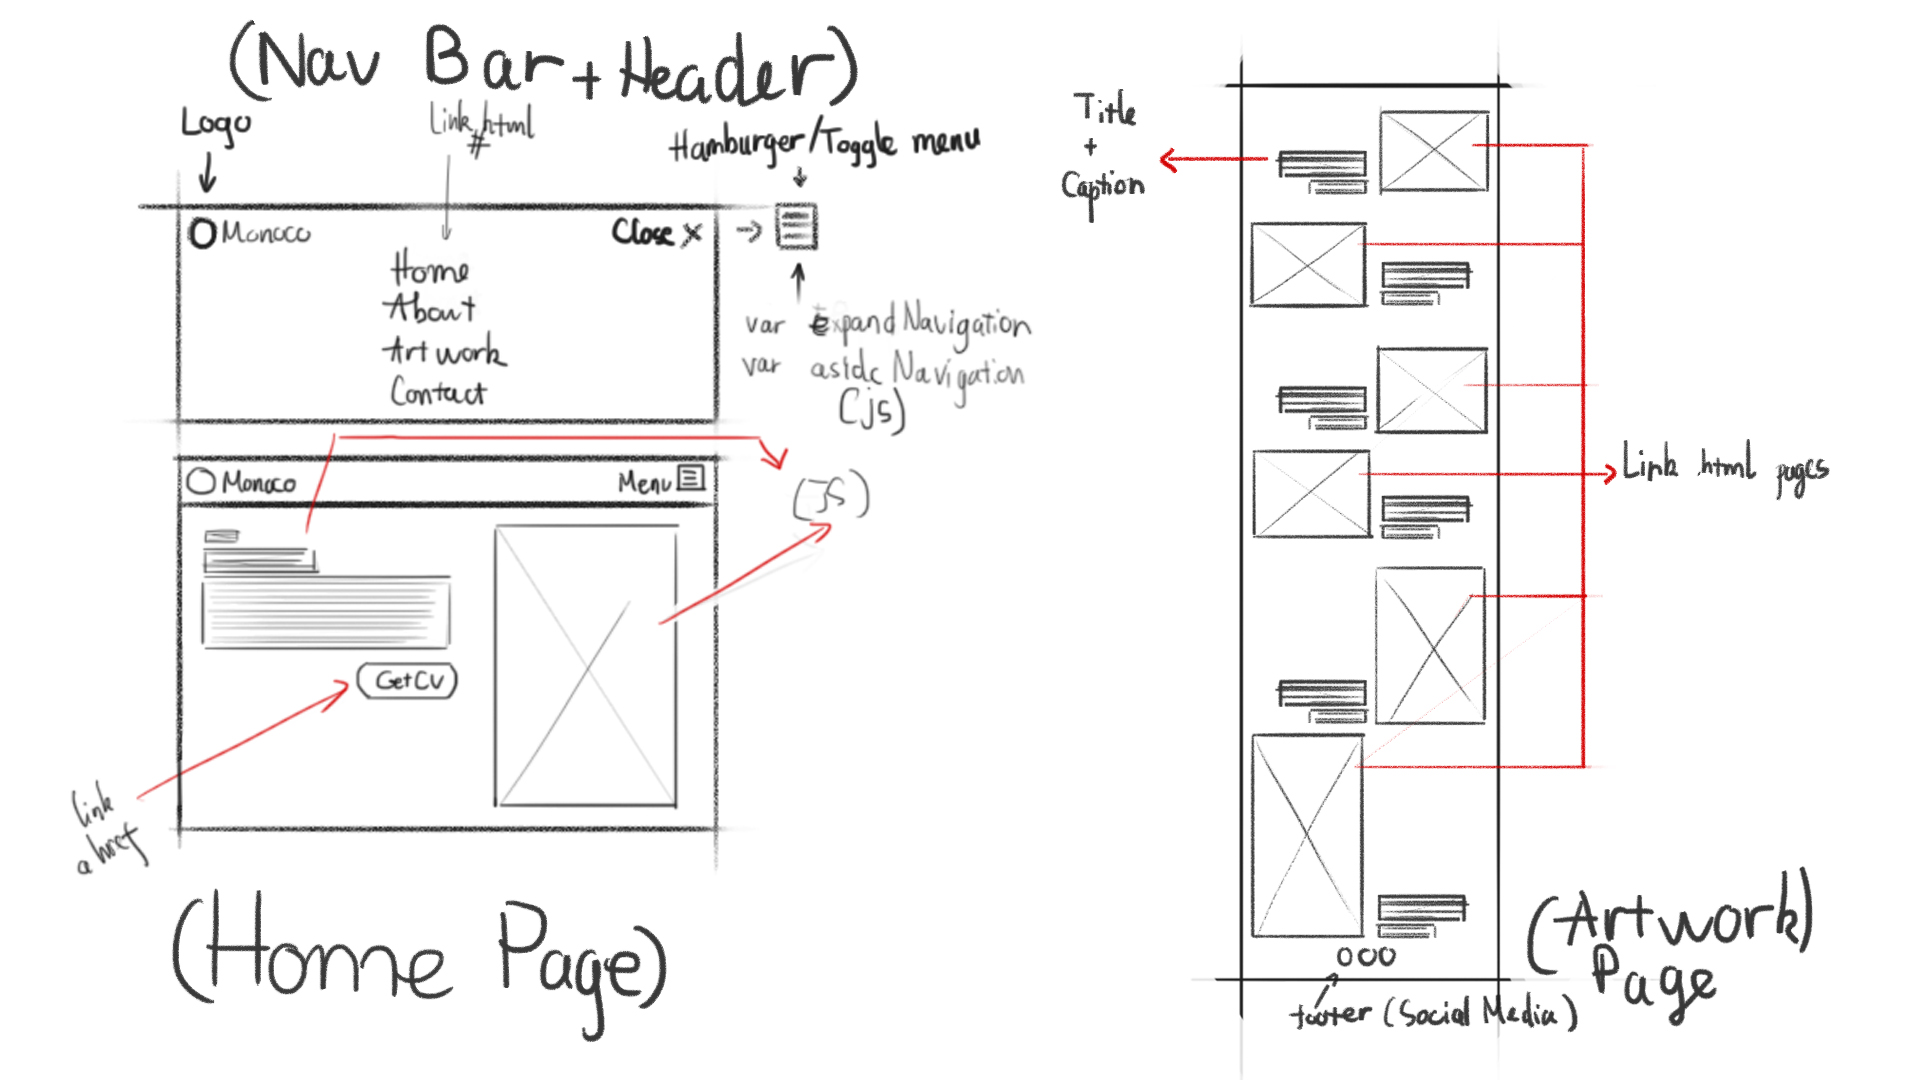 (Nav Bar + Header)
Logo
Link .html
#
Hamburger/Toggle menu
Monoco
Close X
Home
About
Artwork
Contact
var Expand Navigation
var Navigation
(js)
Monoco
Menu
(JS)
Get CV
link
a href
(Home Page)
Title
+
Caption
Link .html pages
footer (Social Media)
(Artwork)
Page